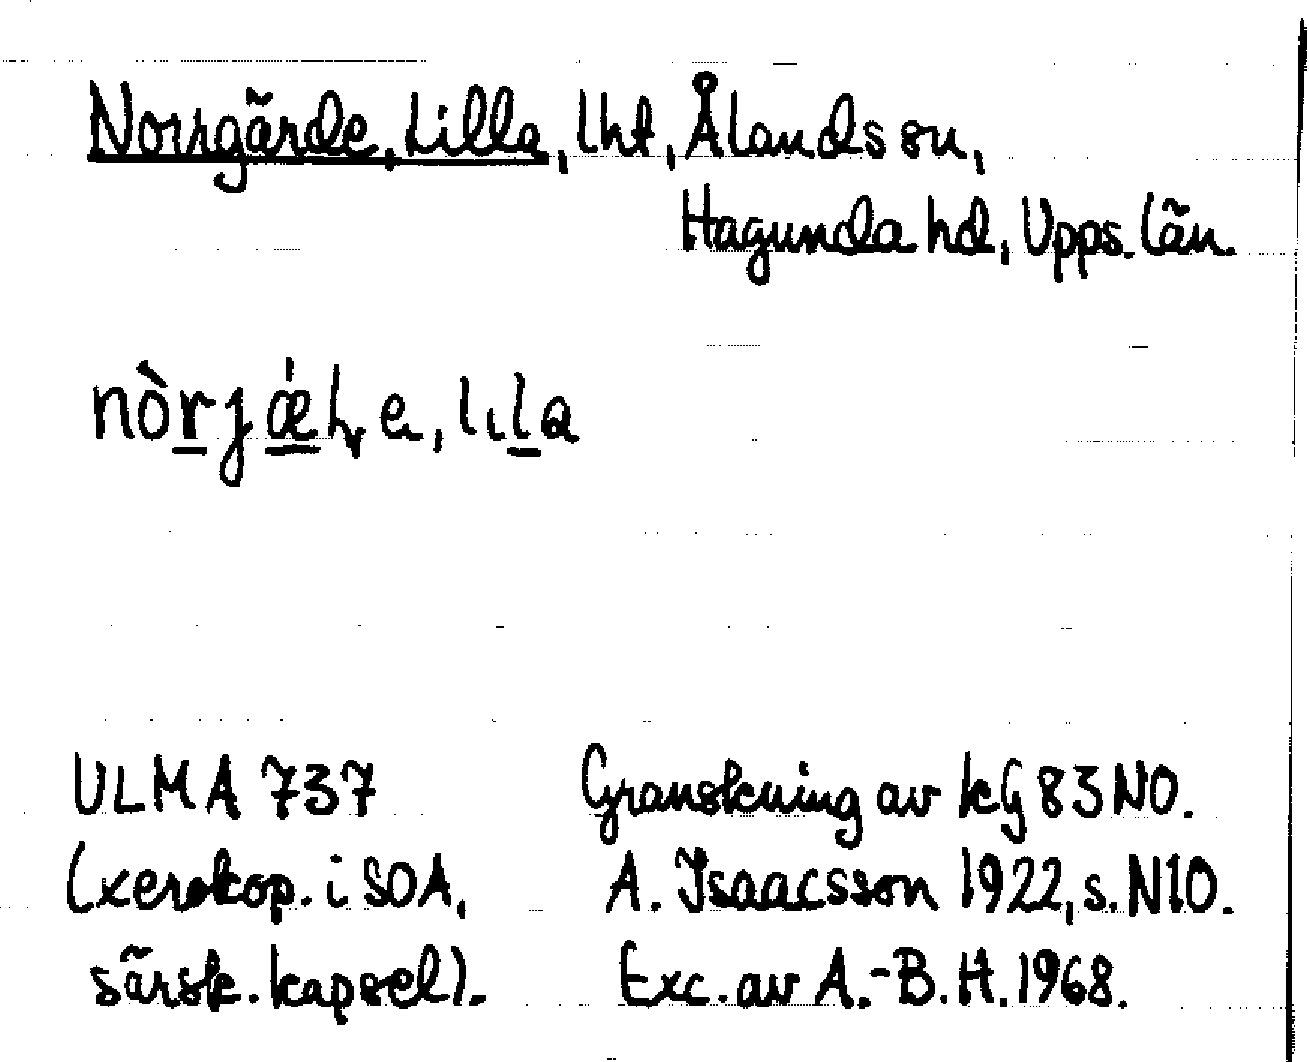 Norrgärde, Lilla, lht, Ålands sn,
Hagunda hd, Upps. län.
nòrjǽɫe, lɩla
ULMA 737
(xerokop. i SOA,
särsk. kapsel).
Granskning av kG 83 NO.
A. Isaacsson 1922, s. N10.
Exc. av A.-B. H. 1968.